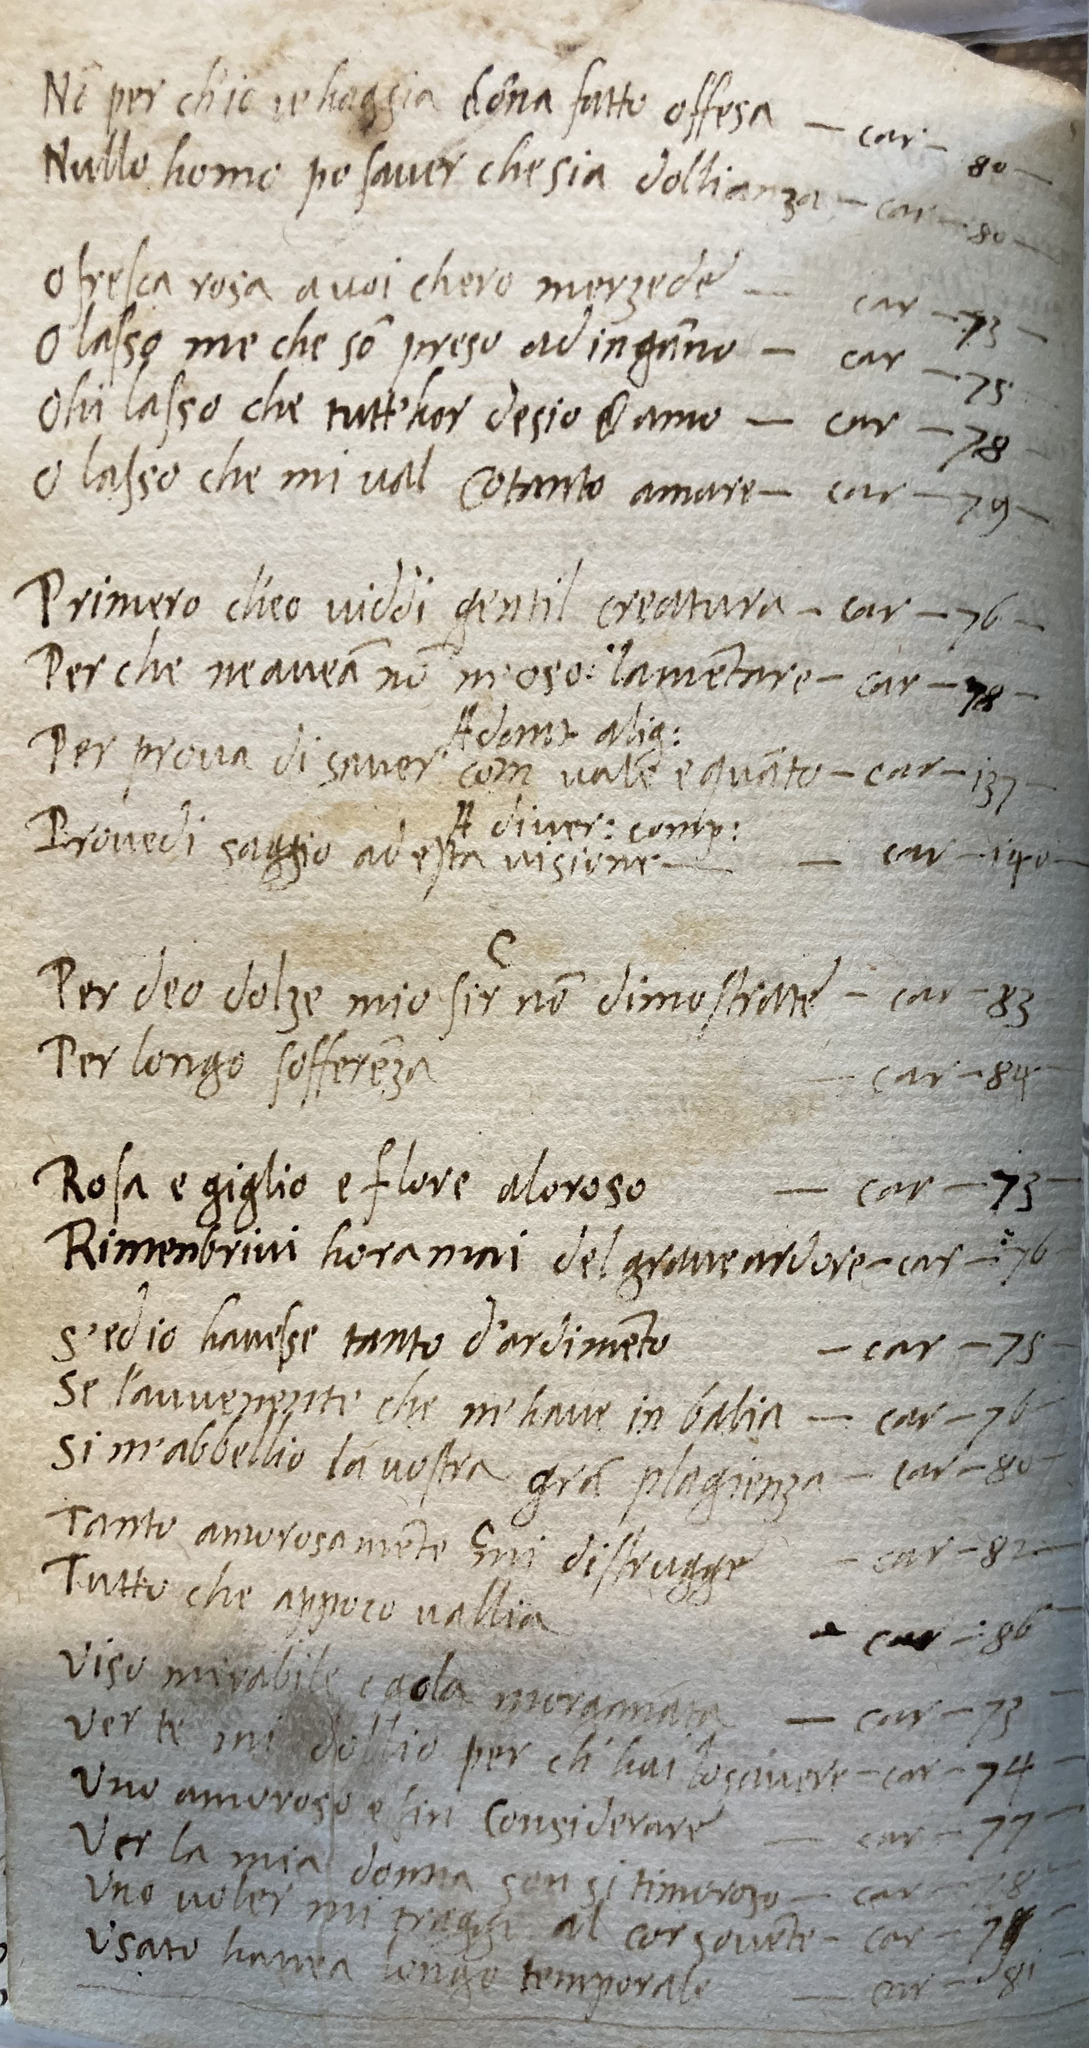 Nō per ch'io ve haggia dōna fatto offesa — car — 80 —
Nullo homo po saver che sia dollianza — car — 80 —
O fresca rosa a voi chero merzede — car — 73 —
O lasso me che sō preso ad ingāno — car — 75
Ohi lasso che tutt'hor desio & amo — car — 78
O lasso che mi val cotanto amare — car — 79 —
Primero ch'eo viddi gentil creatura — car — 76 —
Per che ne aveā nō m'oso lamētare — car — 78 —
A dant alig:
Per prova di saver com vale e quāto — car — 137 —
A diver: comp:
Provedi saggio ad esta visione — car — 140 —
C
Per deo dolze mio sir nō dimostrate — car — 83
Per longo sofferēza — car — 84 —
Rosa e giglio e flore aloroso — car — 73 —
Rimenbrivi hora mai del grave ardore — car — 76
S'ed io havesse tanto d'ardimēto — car — 75 —
Se l'avvenente che m'have in balia — car — 76
Si m'abbellio la vostra grā plagienza — car — 80 —
Tanto amorosamēte mi distrugge — car — 82 —
Tutto che appoco vallia — car — 86
Viso mirabile e gola morganata — car — 73
Ver te mi dollio per ch'hai lo savere — car — 74
Uno amoroso e fin considerare — car — 77
Ver la mia donna son si timoroso — car — 78
Uno voler mi tragge al cor sovēte — car —
Usato havea longo temporale — car — 81